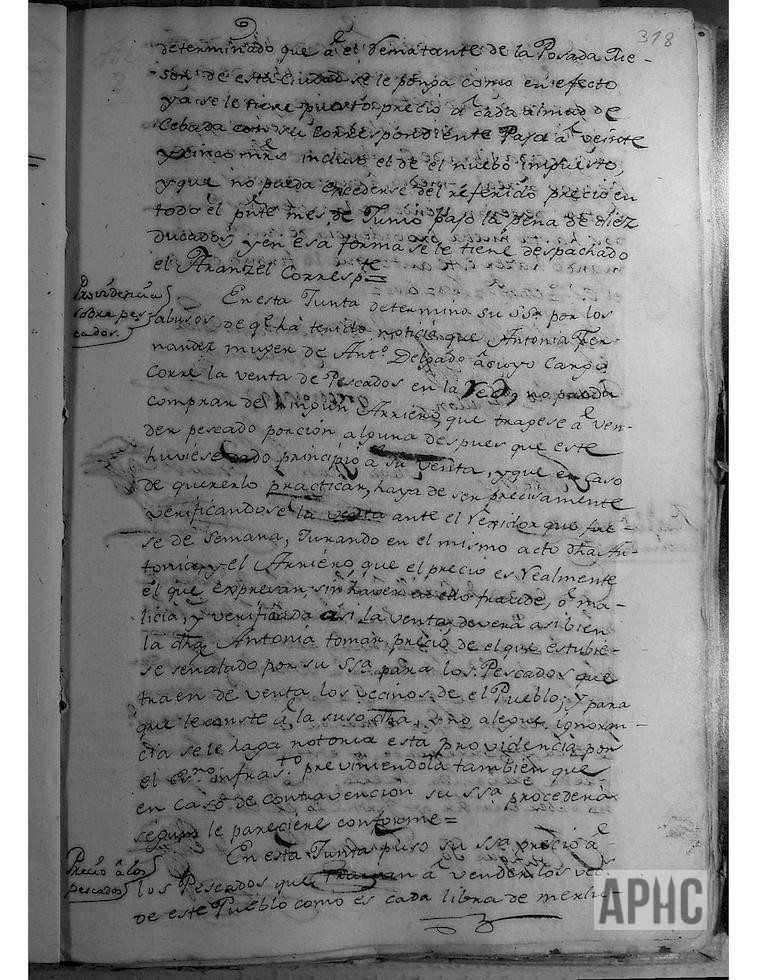 318
determinado que â el Rematante de la Posada Me-
son de esta Ciudad se le ponga como en efecto
ya se le tiene puesto precio â cada almud de
Cebada con su correspondiente Paja â veinte
y cinco mrs incluso el de el nuebo impuesto,
y que no pueda excederse del referido precio en
todo el pnte mes de Junio bajo la pena de diez
ducados y en esa forma se le tiene despachado
el Aranzel Correspte=
Providencia
sobre pes-
cados.
En esta Junta determino su ssa por los
abusos de qe hà tenido noticia que Antonia Fer-
nandez muger de Anto Delgado â cuyo Cargo
Corre la venta de Pescados en la Red, no pueda
comprar de ningun Arriero, que tragese â ven-
der pescado porción alguna despues que este
huviese dado principio a su venta, y que en caso
de quererlo practicar, haya de ser precisamente
verificandose la venta ante el Rexidor que fue-
se de semana, Jurando en el mismo acto dha An-
tonia, y el Arriero, que el precio es Realmente
el que expresan, sin haver en ello fraude, ô ma-
licia, y verificada asi la venta, deverá asi bien
la dha Antonia tomar precio de el que estubie-
se señalado por su ssa para los Pescados que
traen de venta los vecinos de el Pueblo; y para
que le conste â la suso dha, y no alegue ignoran-
cia se le haga notoria esta providencia por
el Esno infrasto previniendola tambien que
en caso de contravención su ssa procederà
segun le pareciere conforme=
Precio â los
pescados
En esta Junta puso su ssa precio â
los Pescados que traigan â vender los vecs
de este Pueblo como es cada libra de merlu-
APHC